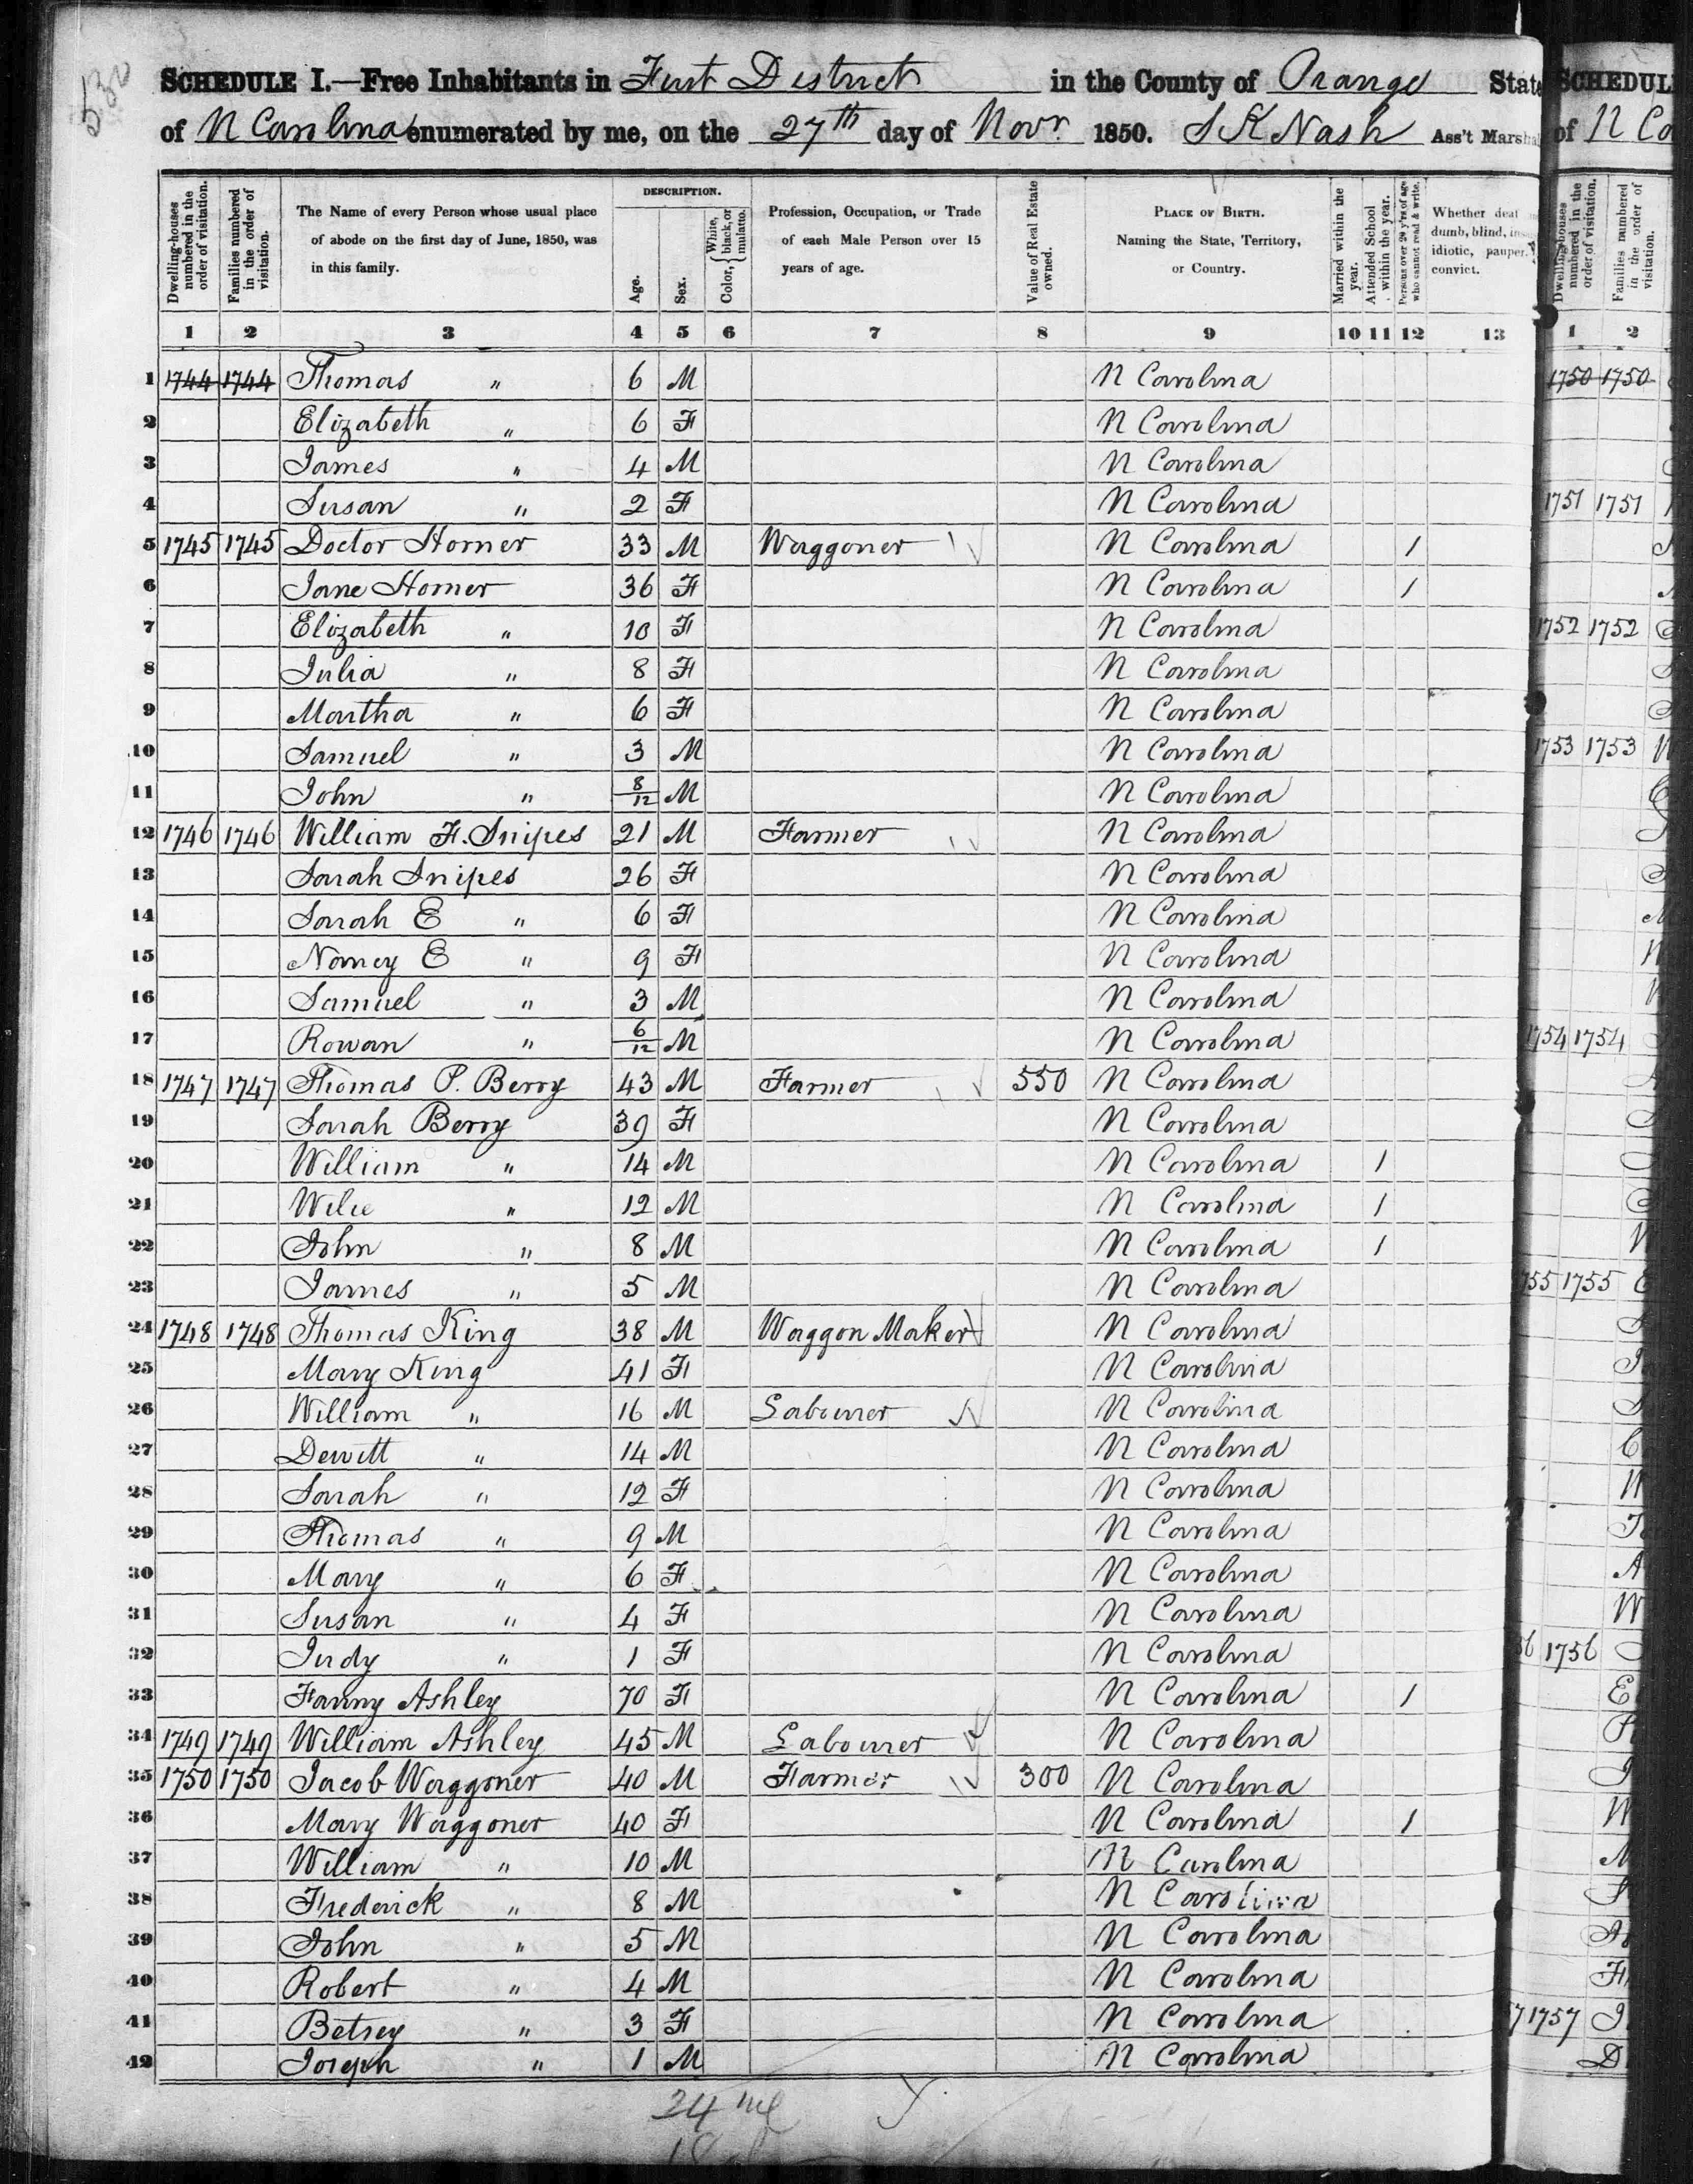 530
SCHEDULE I.—Free Inhabitants in First District in the County of Orange State
of N Carolina enumerated by me, on the 27th day of Novr. 1850. S K Nash Ass't Marshal
Dwelling-houses numbered in the order of visitation.
Families numbered in the order of visitation.
The Name of every Person whose usual place of abode on the first day of June, 1850, was in this family.
DESCRIPTION.
Age.
Sex.
Color, { White, black, or mulatto.
Profession, Occupation, or Trade of each Male Person over 15 years of age.
Value of Real Estate owned.
PLACE OF BIRTH. Naming the State, Territory, or Country.
Married within the year.
Attended School within the year.
Persons over 20 y'rs of age who cannot read & write.
Whether deaf dumb, blind, idiotic, pauper, convict.
1 2 3 4 5 6 7 8 9 10 11 12 13
1 1744 1744 Thomas " 6 M N Carolina
2 Elizabeth " 6 F N Carolina
3 James " 4 M N Carolina
4 Susan " 2 F N Carolina
5 1745 1745 Doctor Horner 33 M Waggoner N Carolina 1
6 Jane Horner 36 F N Carolina 1
7 Elizabeth " 10 F N Carolina
8 Julia " 8 F N Carolina
9 Martha " 6 F N Carolina
10 Samuel " 3 M N Carolina
11 John " 8/12 M N Carolina
12 1746 1746 William F. Snipes 21 M Farmer N Carolina
13 Sarah Snipes 26 F N Carolina
14 Sarah E " 6 F N Carolina
15 Nancy E " 9 F N Carolina
16 Samuel " 3 M N Carolina
17 Rowan " 6/12 M N Carolina
18 1747 1747 Thomas P. Berry 43 M Farmer 550 N Carolina
19 Sarah Berry 39 F N Carolina
20 William " 14 M N Carolina 1
21 Wilie " 12 M N Carolina 1
22 John " 8 M N Carolina 1
23 James " 5 M N Carolina
24 1748 1748 Thomas King 38 M Waggon Maker N Carolina
25 Mary King 41 F N Carolina
26 William " 16 M Labourer N Carolina
27 Dewitt " 14 M N Carolina
28 Sarah " 12 F N Carolina
29 Thomas " 9 M N Carolina
30 Mary " 6 F N Carolina
31 Susan " 4 F N Carolina
32 Judy " 1 F N Carolina
33 Fanny Ashley 70 F N Carolina 1
34 1749 1749 William Ashley 45 M Labourer N Carolina
35 1750 1750 Jacob Waggoner 40 M Farmer 300 N Carolina
36 Mary Waggoner 40 F N Carolina 1
37 William " 10 M N Carolina
38 Frederick " 8 M N Carolina
39 John " 5 M N Carolina
40 Robert " 4 M N Carolina
41 Betsey " 3 F N Carolina
42 Joseph " 1 M N Carolina
24
SCHEDUL
of N Ca
Dwelling-houses numbered in the order of visitation.
Families numbered in the order of visitation.
1 2
1750 1750
1751 1751
1752 1752
1753 1753
1754 1754
755 1755
56 1756
7 1757